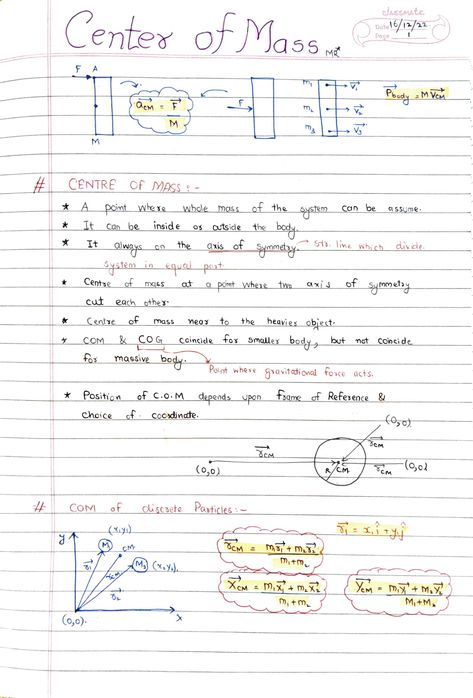 classmate
Date 16/12/22
Page 1
Center of Mass
F A
M
a⃗CM = F⃗/M
F
m₁ v⃗₁
m₂ v⃗₂
m₃ v⃗₃
P⃗body = M V⃗CM
# CENTRE OF MASS :-
* A point where whole mass of the system can be assume.
* It can be inside or outside the body.
* It always on the axis of symmetry. → Str. line which divide
system in equal part
* Centre of mass at a point where two axis of symmetry
cut each other.
* Centre of mass near to the heavier object.
* COM & COG coincide for smaller body, but not coincide
for massive body.
Point where gravitational force acts.
* Position of C.O.M depends upon frame of Reference &
choice of coordinate.
(0,0)
r⃗CM
(0,0) r⃗CM R CM r⃗CM (0,0)
# COM of discrete Particles:-
y
M₁ (x₁y₁)
CM
M₂ (x₂y₂)
r⃗₁ rCM r⃗₂
(0,0) x
r⃗₁ = x₁î + y₁ĵ
r⃗CM = m₁r⃗₁ + m₂r⃗₂ / m₁+m₂
X⃗CM = m₁x⃗₁ + m₂x⃗₂ / m₁+m₂
Y⃗CM = m₁y⃗₁ + m₂y⃗₂ / M₁+M₂